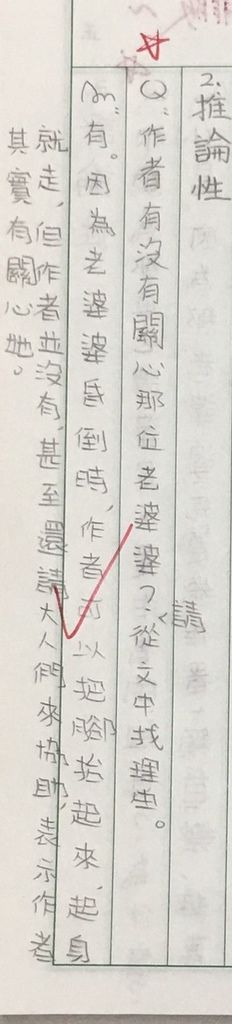 2.推論性
Q:作者有沒有關心那位老婆婆?請從文中找理由。
An:有。因為老婆婆昏倒時,作者可以把腳抬起來,起身
就走,但作者並沒有,甚至還請大人們來協助,表示作者
其實有關心她。